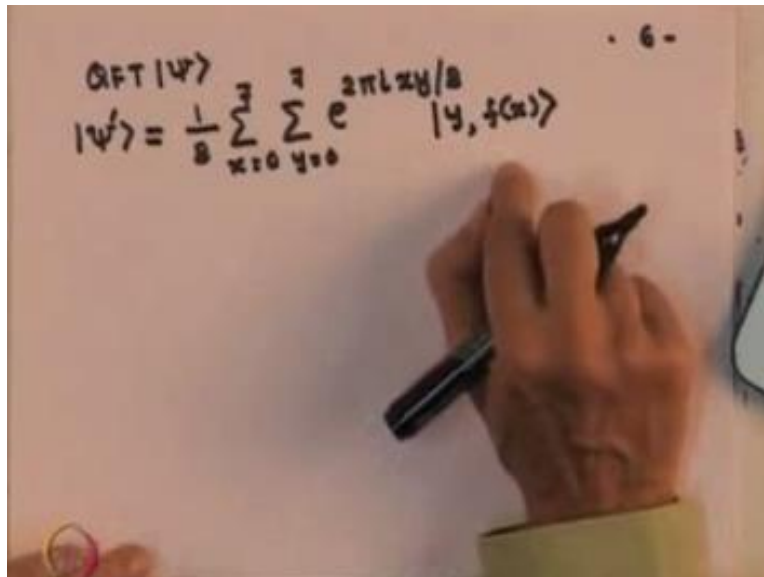 · 6 -
QFT |Ψ⟩
|Ψ'⟩ = 1/8 ∑_{x=0}^{7} ∑_{y=0}^{7} e^{2πixy/8} |y, f(x)⟩